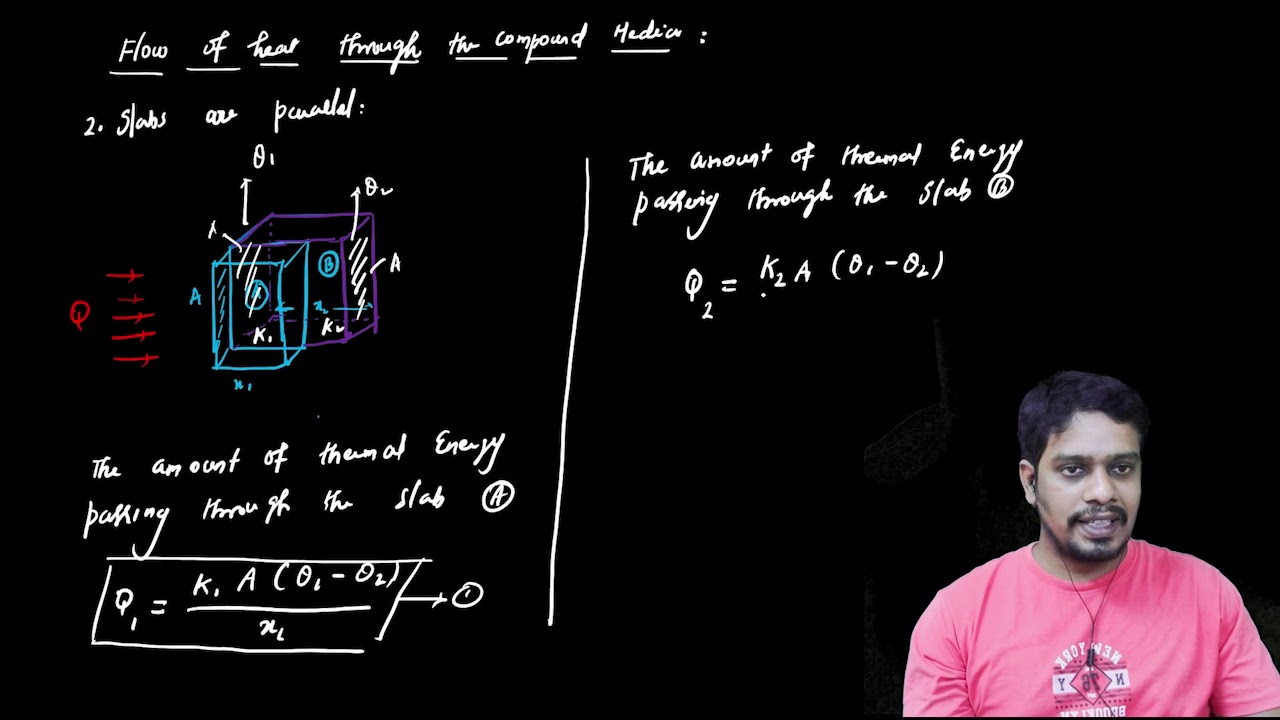 Flow of heat through the compound Media :
2. Slabs are parallel:
θ1
θ2
A
A
A
B
A
Q
K1
x2
K2
x1
The amount of thermal Energy
passing through the slab Ⓐ
Q1 = K1 A (θ1 - θ2)
x1
→ ①
The amount of thermal Energy
passing through the slab Ⓑ
Q2 = K2 A (θ1 - θ2)
NEW YORK
N 76 Y
BROOKLYN